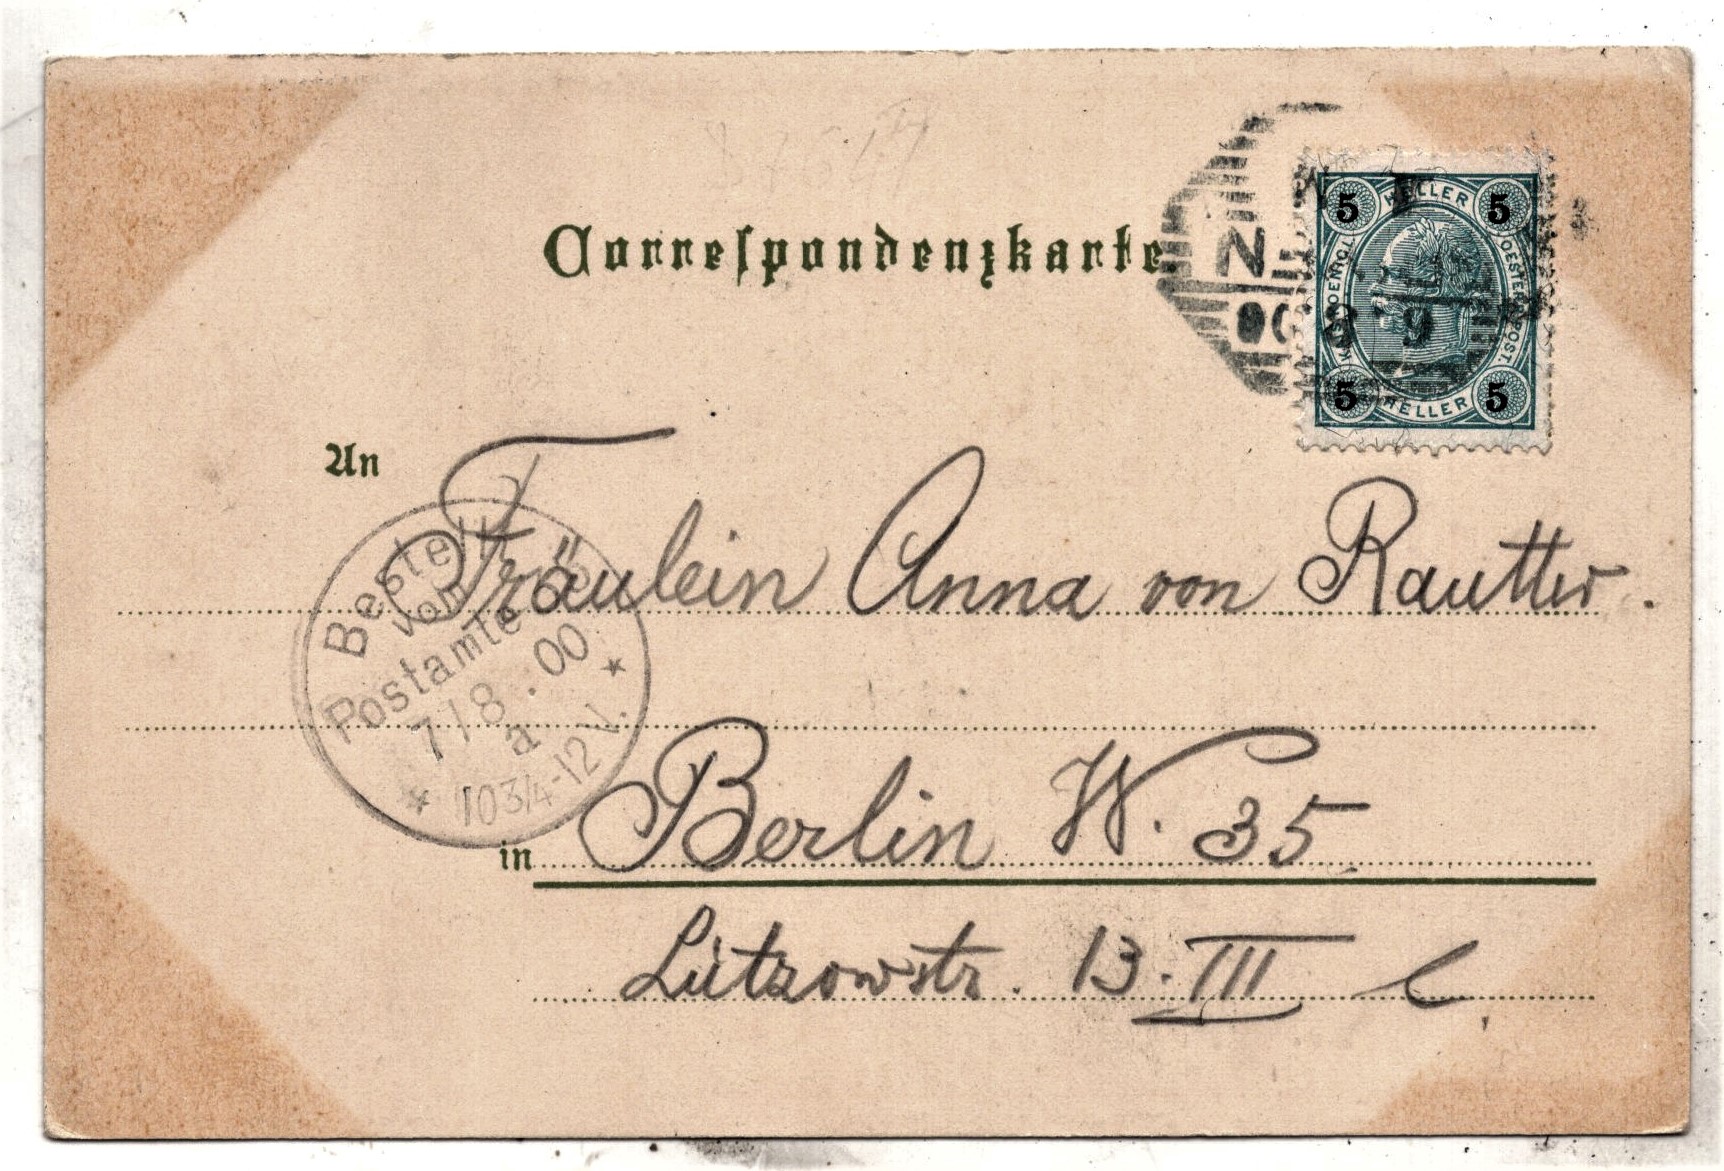 Correspondenzkarte.
5 HELLER 5
KAIS. KOENIGL. OESTERR. POST.
5 HELLER 5
An
Fräulein Anna von Rautter.
Bestellt
vom
Postamte
7/8.00
a
* 10 3/4-12 V. *
in Berlin W. 35
Lützowstr. 13. III l